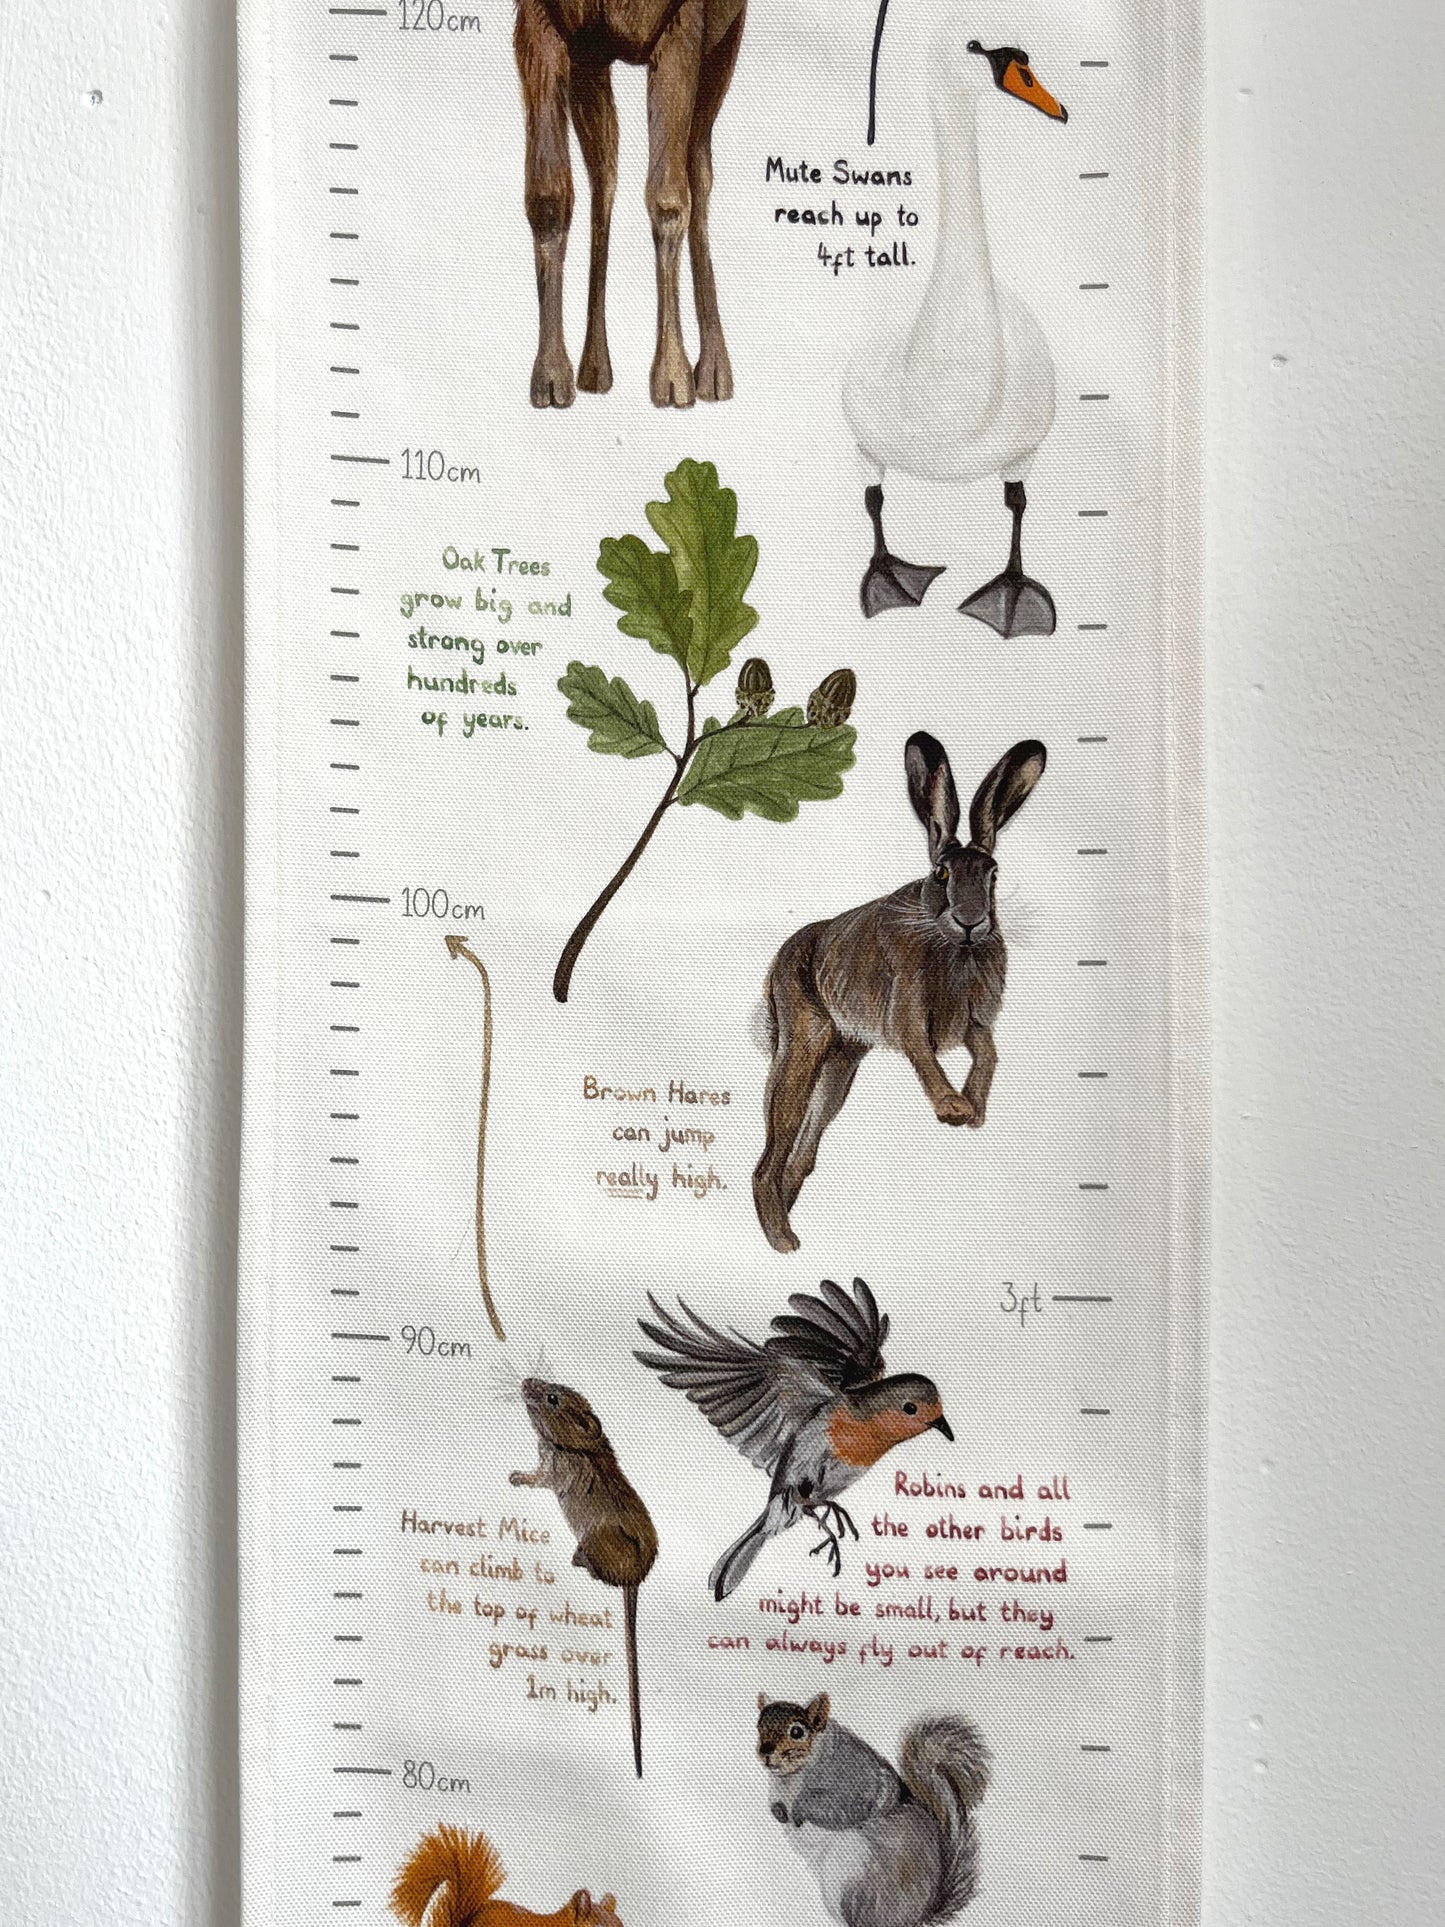 120cm
Mute Swans
reach up to
4ft tall.
110cm
Oak Trees
grow big and
strong over
hundreds
of years.
100cm
Brown Hares
can jump
really high.
3ft
90cm
Robins and all
the other birds
you see around
might be small, but they
can always fly out of reach.
Harvest Mice
can climb to
the top of wheat
grass over
1m high.
80cm